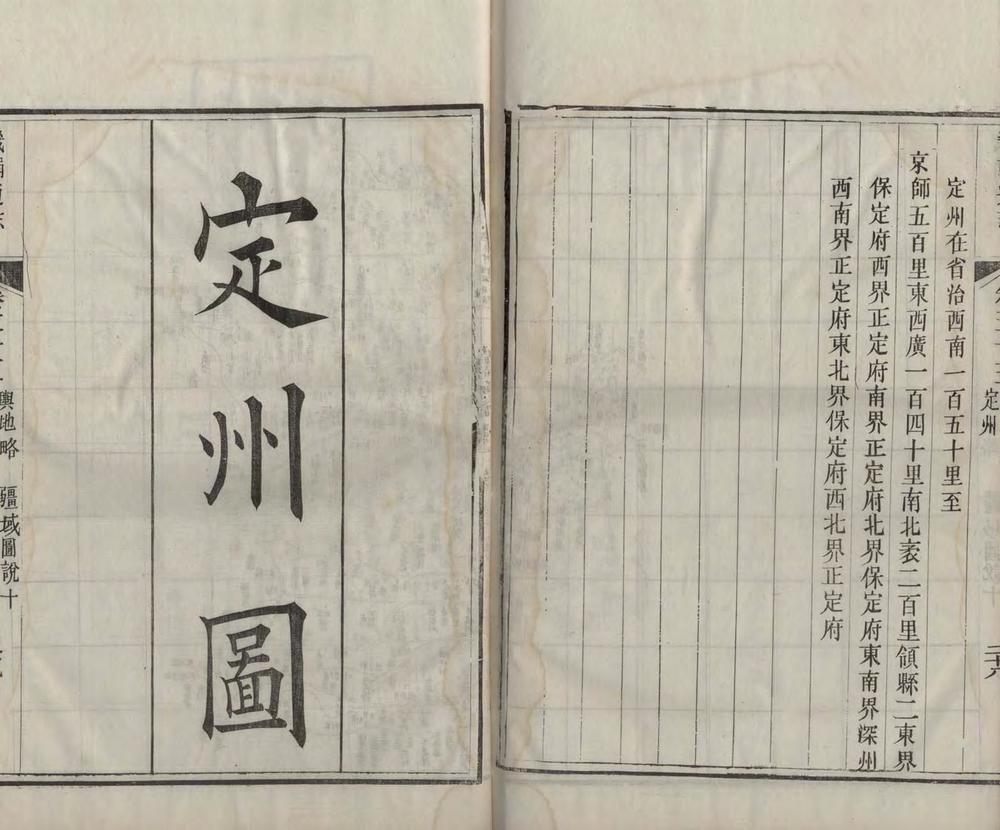 定州
二十六
定州在省治西南一百五十里至
京師五百里東西廣一百四十里南北袤二百里領縣二東界
保定府西界正定府南界正定府北界保定府東南界深州
西南界正定府東北界保定府西北界正定府
定州圖
畿輔通志
輿地略 疆域圖說十